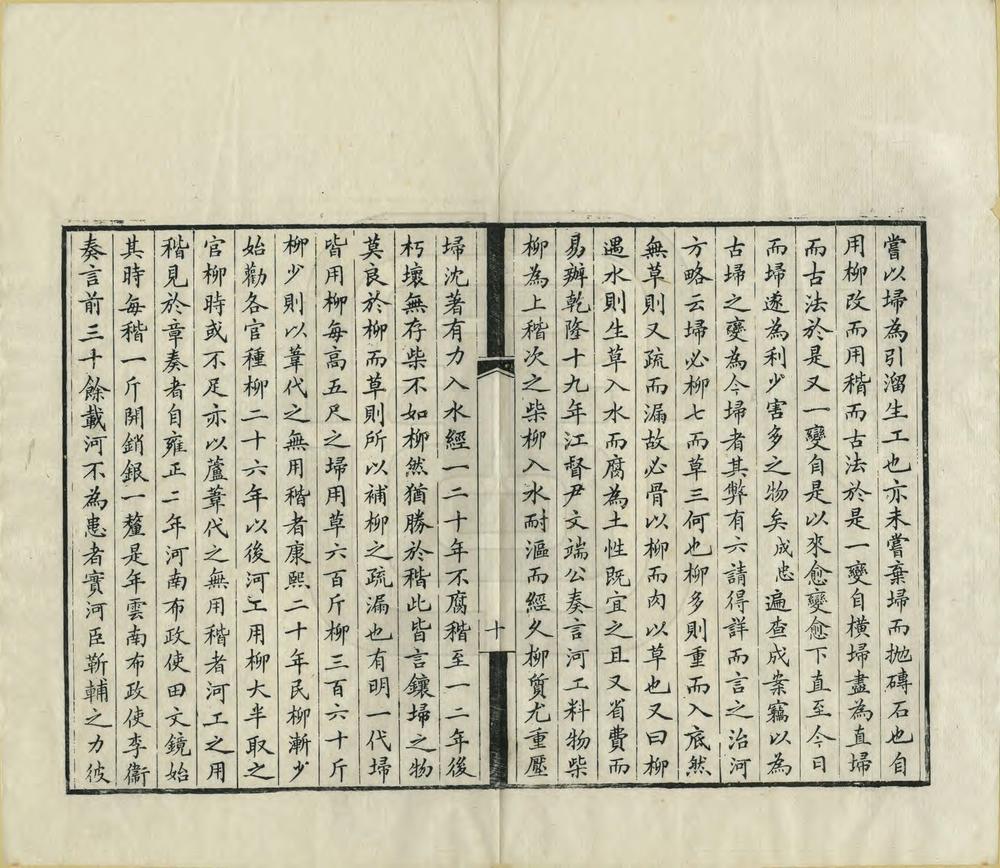 嘗以埽為引溜生工也亦未嘗棄埽而拋磚石也自
用柳改而用稭而古法於是一變自橫埽盡為直埽
而古法於是又一變自是以來愈變愈下直至今日
而埽遂為利少害多之物矣成忠遍查成案竊以為
古埽之變為今埽者其弊有六請得詳而言之治河
方略云埽必柳七而草三何也柳多則重而入底然
無草則又疏而漏故必骨以柳而肉以草也又曰柳
遇水則生草入水而腐為土性既宜之且又省費而
易辦乾隆十九年江督尹文端公奏言河工料物柴
柳為上稭次之柴柳入水耐漚而經久柳質尤重壓
十
埽沈著有力入水經一二十年不腐稭至一二年後
朽壞無存柴不如柳然猶勝於稭此皆言鑲埽之物
莫良於柳而草則所以補柳之疏漏也有明一代埽
皆用柳每高五尺之埽用草六百斤柳三百六十斤
柳少則以葦代之無用稭者康熙二十年民柳漸少
始勸各官種柳二十六年以後河工用柳大半取之
官柳時或不足亦以蘆葦代之無用稭者河工之用
稭見於章奏者自雍正二年河南布政使田文鏡始
其時每稭一斤開銷銀一釐是年雲南布政使李衞
奏言前三十餘載河不為患者實河臣靳輔之力彼